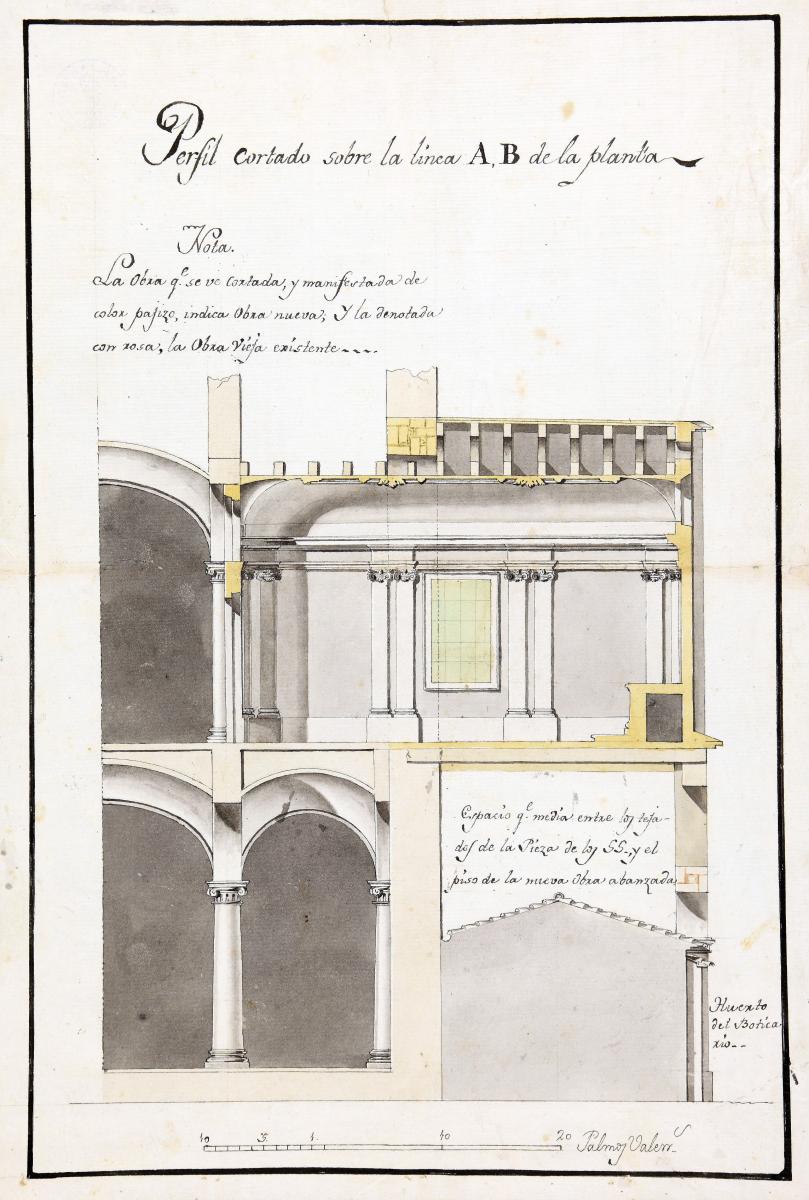 Perfil cortado sobre la linea A, B de la planta
Nota.
La Obra q.e se ve cortada, y manifestada de
color pajizo, indica Obra nueva; Y la denotada
con rosa, la Obra Vieja existente - - - -
Espacio q.e media entre los teja-
dos de la Pieza de los SS.; y el
piso de la nueva Obra abanzada
Huerto
del Botica-
rio - -
10 5. 1. 10 20 Palmos Valen.s